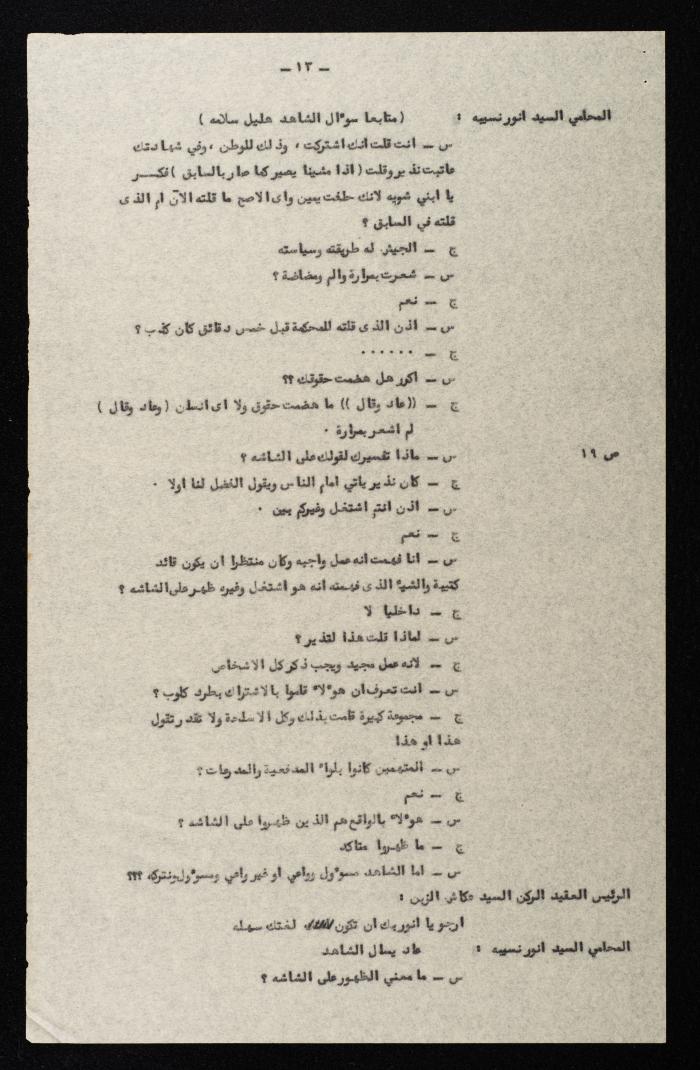 ـ ١٣ ـ
المحامي السيد انور نسيبه : (متابعا سوءال الشاهد هليل سلامه )
س ـ انت قلت انك اشتركت ، وذلك للوطن ، وفي شهادتك
عاتبت نذير وقلت ( اذا مشينا يصير كما صار بالسابق ) فكـــر
يا ابني شويه لانك حلفت يمين واى الاصح ما قلته الآن ام الذى
قلته في السابق ؟
ج ـ الجيش له طريقته وسياسته
س ـ شعرت بمرارة والم ومضاضة ؟
ج ـ نعم
س ـ اذن الذى قلته للمحكمة قبل خمس دقائق كان كذب ؟
ج ـ ٠٠٠٠٠٠
س ـ اكرر هل هضمت حقوقك ؟؟
ج ـ ((عاد وقال )) ما هضمت حقوق ولا اى انسان ( وعاد وقال )
لم اشعر بمرارة ٠
ص ١٩ س ـ ماذا تفسيرك لقولك على الشاشه ؟
ج ـ كان نذير ياتي امام الناس ويقول الفضل لنا اولا ٠
س ـ اذن انتم اشتغل وغيركم بين ٠
ج ـ نعم
س ـ انا فهمت انه عمل واجبه وكان منتظرا ان يكون قائد
كتيبة والشيء الذى فهمته انه هو اشتغل وغيره ظهر على الشاشه ؟
ج ـ داخليا لا
س ـ لماذا قلت هذا لنذير ؟
ج ـ لانه عمل مجيد ويجب ذكر كل الاشخاص
س ـ انت تعرف ان هوءلاء قاموا بالاشتراك بطرد كلوب ؟
ج ـ مجموعة كبيرة قامت بذلك وكل الاسلحة ولا تقدر تقول
هذا او هذا
س ـ المتهمين كانوا بلواء المدفعية والمدرعات ؟
ج ـ نعم
س ـ هوءلاء بالواقع هم الذين ظهروا على الشاشه ؟
ج ـ ما ظهروا متاكد
س ـ اما الشاهد مسوءول وواعي او غير واعي ومسوءول ونتركه ؟؟؟
الرئيس العقيد الركن السيد عكاش الزبن :
ارجو يا انور بك ان تكون لغتك سهله
المحامي السيد انور نسيبه : عاد يسال الشاهد
س ـ ما معني الظهور على الشاشه ؟